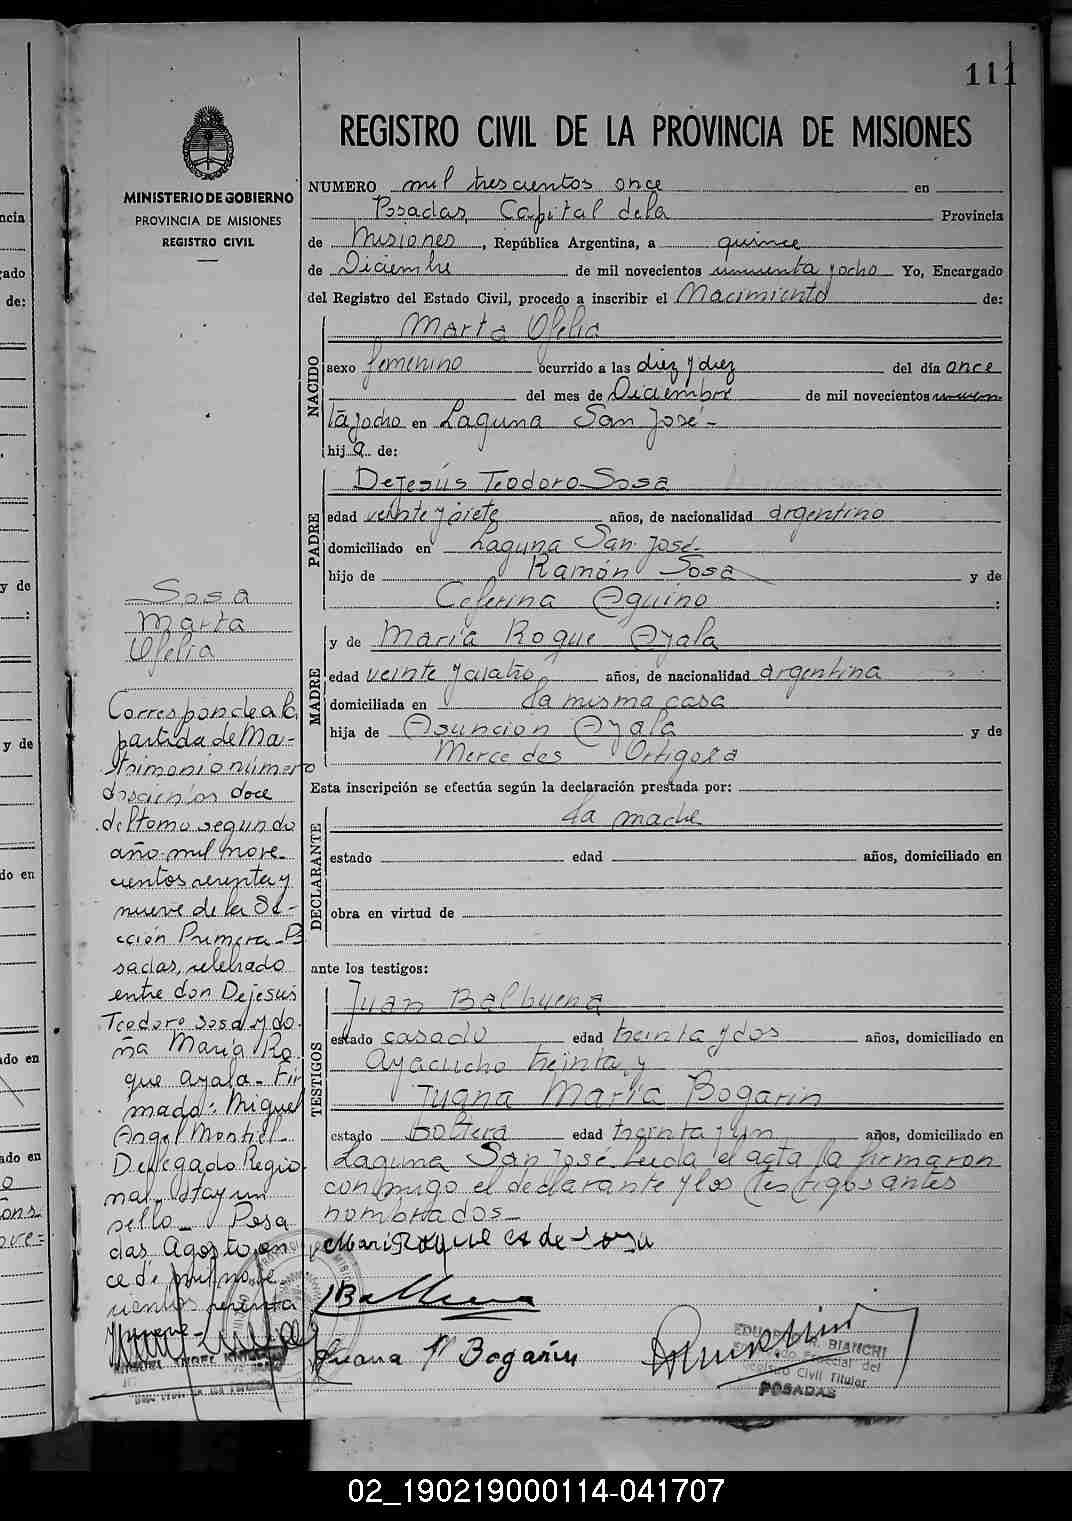 111
REGISTRO CIVIL DE LA PROVINCIA DE MISIONES
MINISTERIO DE GOBIERNO
PROVINCIA DE MISIONES
REGISTRO CIVIL
NUMERO mil trescientos once en
Posadas, Capital de la Provincia
de Misiones, República Argentina, a quince
de Diciembre de mil novecientos cincuenta y ocho Yo, Encargado
del Registro del Estado Civil, procedo a inscribir el Nacimiento de:
NACIDO
Marta Ofelia
sexo femenino ocurrido a las diez y diez del día once
del mes de Diciembre de mil novecientos cincuen-
ta y ocho en Laguna San José-
hija de:
PADRE
Dejesús Teodoro Sosa
edad veinte y siete años, de nacionalidad argentino
domiciliado en Laguna San José-
hijo de Ramón Sosa y de
Ceferina Aquino :
MADRE
y de María Roque Ayala
edad veinte y cuatro años, de nacionalidad argentina
domiciliada en la misma casa
hija de Asunción Ayala y de
Mercedes Ortigoza
Esta inscripción se efectúa según la declaración prestada por:
DECLARANTE
la madre
estado edad años, domiciliado en
obra en virtud de
ante los testigos:
TESTIGOS
Juan Balbuena
estado casado edad treinta y dos años, domiciliado en
Ayacucho treinta y
Juana María Bogarin
estado soltera edad treinta y un años, domiciliado en
Laguna San José. Leida el acta la firmaron
conmigo el declarante y los testigos antes
nombrados-
Maria Roque A de Sosa
Balbuena
Juana M Bogarin
EDUARDO R. BIANCHI
Encargado Especial del
Registro Civil Titular
POSADAS
Sosa
Marta
Ofelia
Corresponde a la
partida de Ma-
trimonio número
doscientos doce
del tomo segundo
año mil nove-
cientos sesenta y
nueve de la Se-
cción Primera-Po
sadas, celebrado
entre don Dejesús
Teodoro Sosa y do-
ña María Ro-
que Ayala- Fir
mado: Miguel
Angel Montiel-
Delegado Regio-
nal- Hay un
sello- Posa
das Agosto on
ce de mil nove-
cientos sesenta
y nueve-
02_190219000114-041707